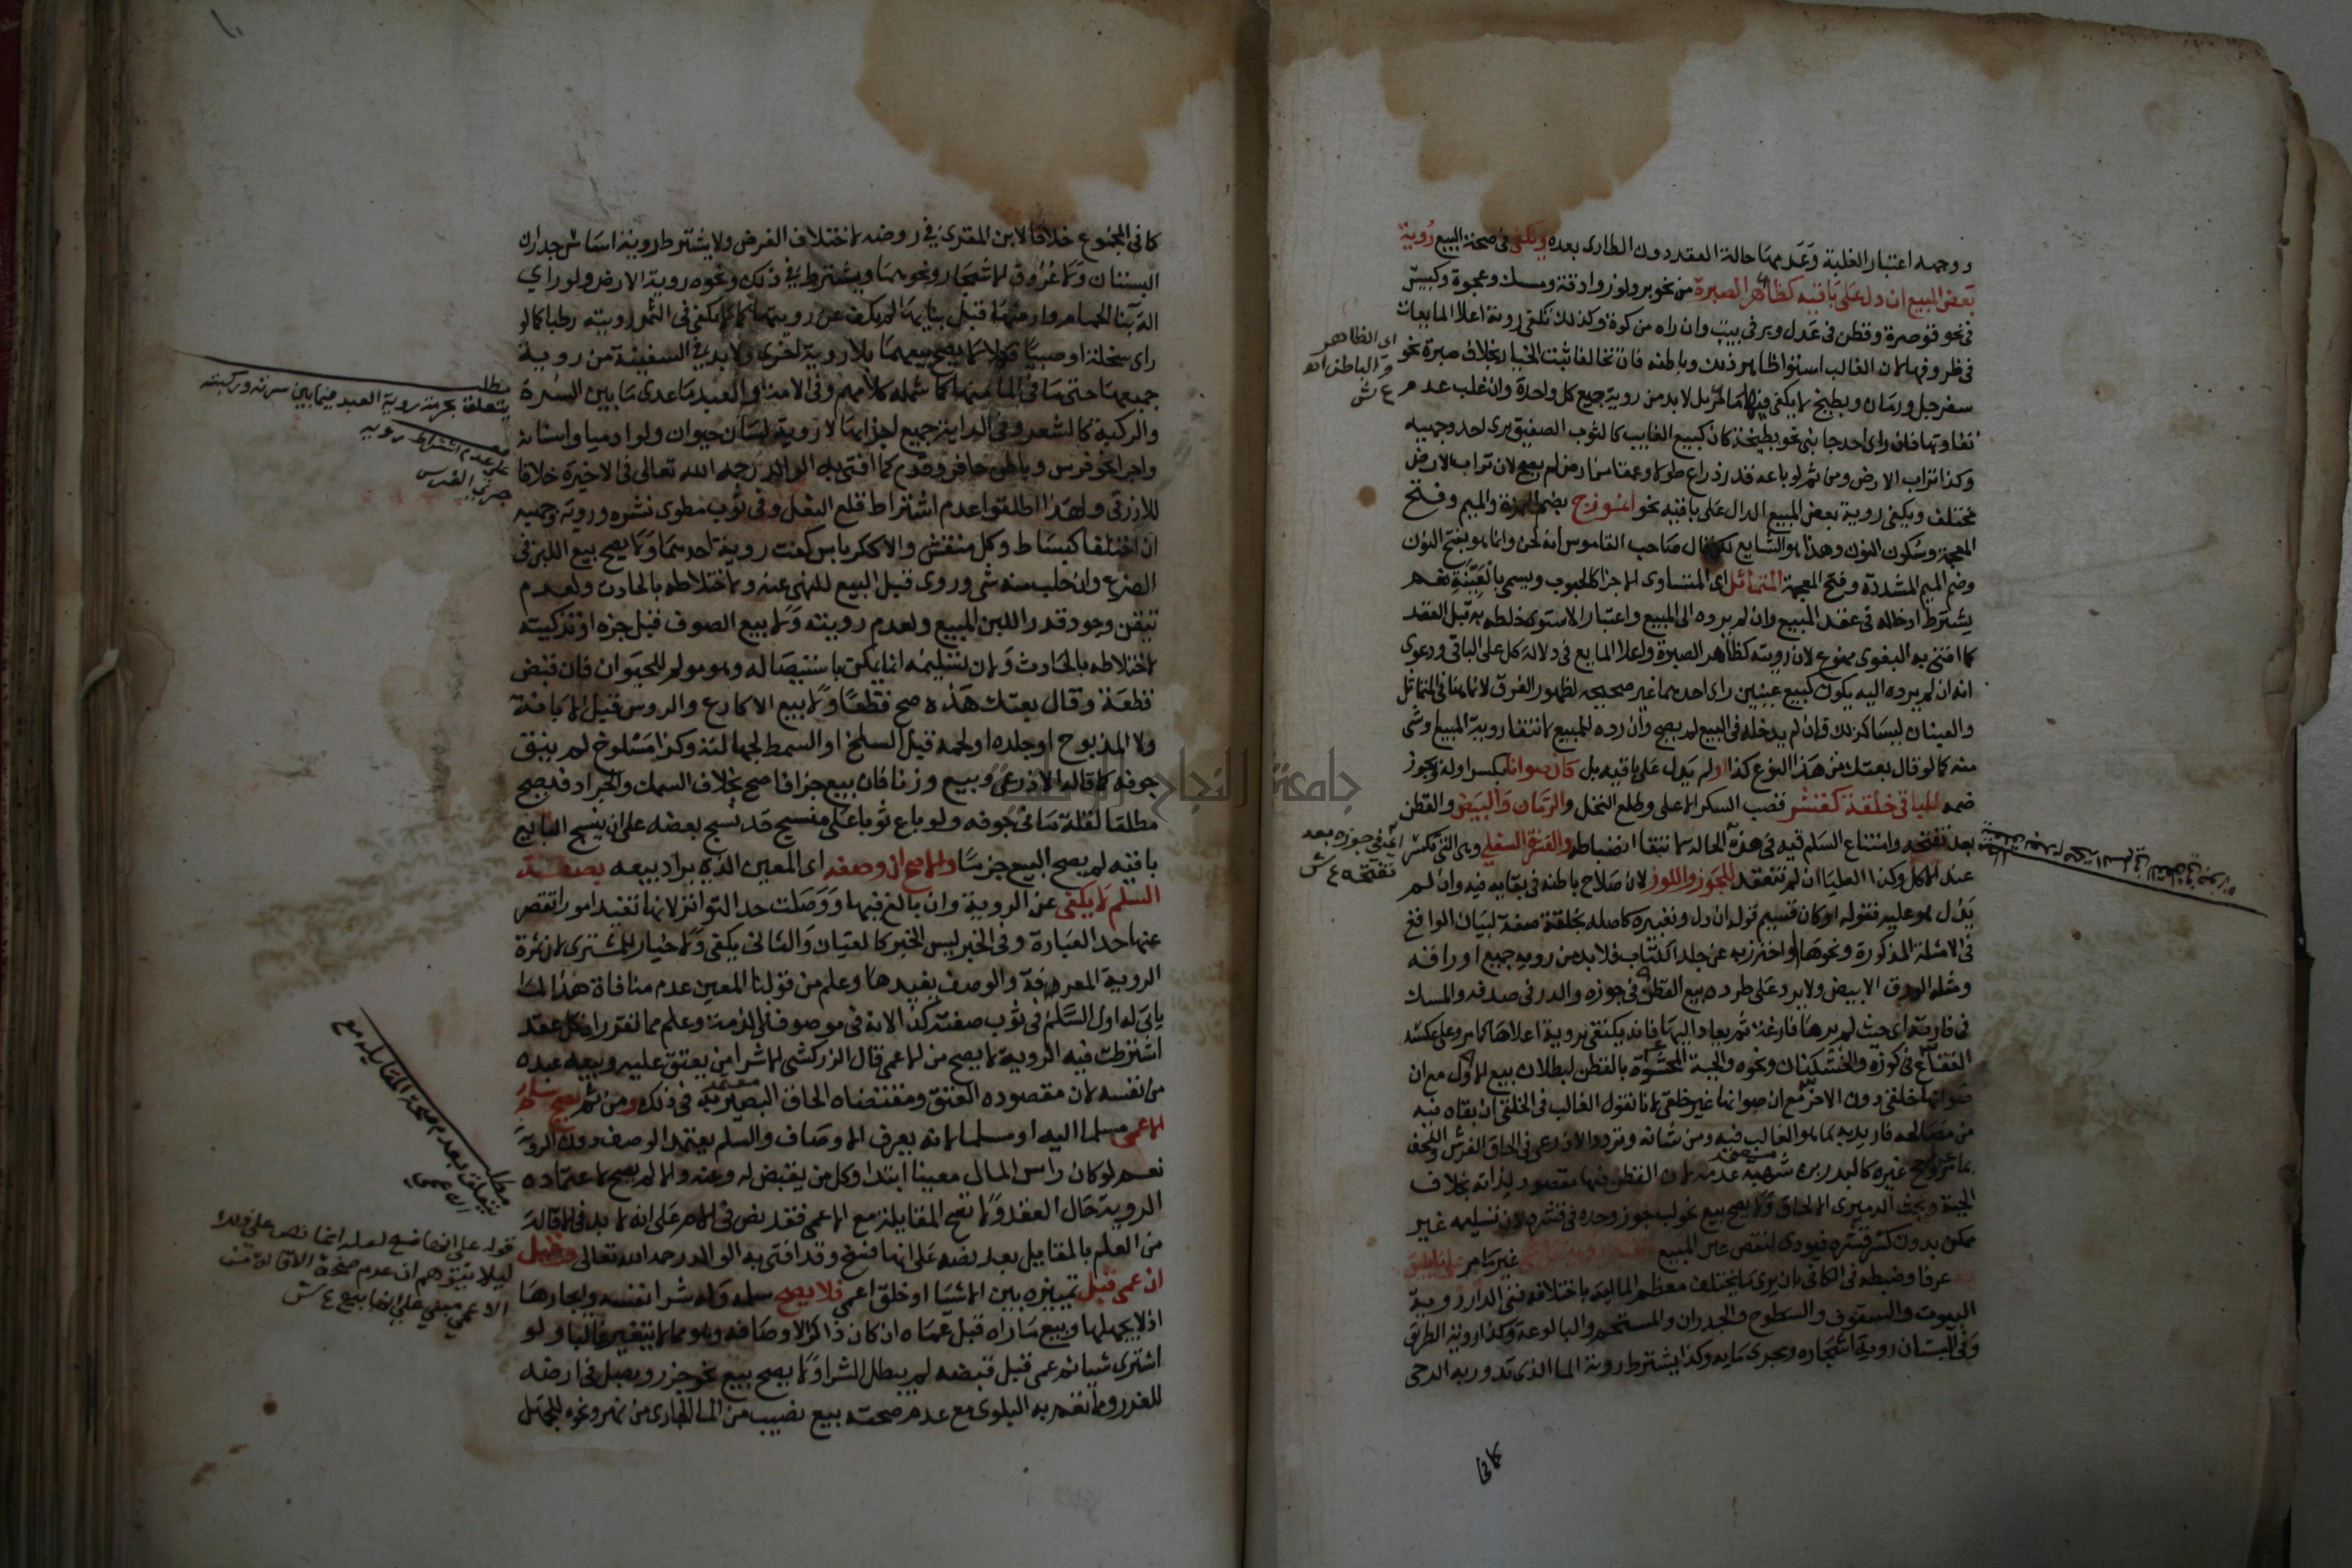 ووجهه اعتبار الغلبة وعدمها حالة العقد دون الطارى بعده ويكفى فى صحة البيع رؤية
بعض المبيع ان دل على باقيه كظاهر الصبرة من نحو بر ولوز وادقة ومسك وعجوة وكبيس
فى نحو قوصرة وقطن فى عدل وبر فى بيت وان راه من كوة وكذلك تكفى روية اعلا المايعات
فى ظروفها لان الغالب استوا ظاهر ذلك وباطنه فان تخالفا ثبت الخيار بخلاف صبرة نحو
سفرجل ورمان وبطيخ لا يكفى فيها ما مر بل لا بد من روية جميع كل واحدة وان غلب عدم
تفاوتها فان راى احد جانبى نحو بطيخة كان كبيع الغايب كالثوب الصفيق يرى احد وجهيه
وكذا تراب الارض ومن ثم لو باعه قدر ذراع طولا وعمقا من ارض لم يصح لان تراب الارض
مختلف ويكفى روية بعض المبيع الدال على باقيه نحو انموذج بضم الهمزة والميم وفتح
المعجمة وسكون النون وهذا هو الشايع لكن قال صاحب القاموس انه لحن وانما هو بفتح النون
وضم الميم المشددة وفتح المعجمة المتماثل اى المتساوى الاجزا كالحبوب ويسمى بالعينة نعم
يشترط ادخاله فى عقد المبيع وان لم يرده الى المبيع واعتبار الاستوى خلطه به قبل العقد
كما افتى به البغوى ممنوع لان رويته كظاهر الصبرة واعلا المايع فى دلالة كل على الباقى ودعوى
انه ان لم يرده اليه يكون كبيع عينين راى احدهما غير صحيحه لظهور الفرق لاننا هنا فى المتماثل
والعينان ليسا كذلك فان لم يدخله فى البيع لم يصح وان رده للمبيع لانتفا روية المبيع او شى
منه كما لو قال بعتك من هذا النوع كذا او لم يدل على باقيه بل كان صوانا بكسر اوله ويجوز
ضمه للباقى خلقة كقشر قصب السكر الاعلى وطلع النخل والرمان والبيض والقطن
بعد تفتحه وامتناع السلم فيه فى هذه الحالة لانتفا انضباطه والقشرة السفلى وهى التى تكسر
عند الاكل وكذا العليا ان لم تنعقد للجوز واللوز لان صلاح باطنه فى بقايه فيه وان لم
يدل هو عليه فقوله او كان قسيم قوله ان دل وتعبيره كاصله بخلقة صفة لبيان الواقع
فى الامثلة المذكورة ونحوها او احترز به عن جلد الكتاب فلا بد من روية جميع اوراقه
ومثله الورق الابيض ولا يرد على طرده بيع القطن فى جوزه والدر فى صدفه والمسك
فى فارته اى حيث لم يرها فارغة ثم يعاد اليها فانه يكتفى بروية اعلاها كما مر وعلى عكسه
الفقاع فى كوزه والخشكنان ونحوه والجبة المحشوة بالقطن لبطلان بيع الاول مع ان
صوانها خلقى دون الاخر مع ان صوانها غير خلقى لانا نقول الغالب فى الخلقى ان بقاه فيه
من مصالحه فاريد به ما هو الغالب فيه ومن شانه وتردد الاذرعى فى الحاق الفرش واللحف
بها ورجح غيره كالبدر بن شهبة عدمه لان القطن فيها مقصود لذاته بخلاف
الجبة وبحث الدميرى الالحاق ولا يصح بيع نحو لب جوز وحده فى قشره لان تسليمه غير
ممكن بدون كسر قشره فيودى لنقص عين المبيع وتعتبر روية كل شى غير ما مر على ما يليق
به عرفا وضبطه فى الكافى بان يرى ما يختلف معظم المالية باختلافه ففى الدار روية
البيوت والسقوف والسطوح والجدران والمستحم والبالوعة وكذا روية الطريق
وفى البستان روية اشجاره ومجرى مايه وكذا يشترط روية الما الذى تدور به الرحى
كما فى
اى الظاهر
والباطن اه
ع ش
اى فى جوزه بعد
تفتحه ع ش
كما فى المجموع خلافا لابن المقرى فى روضه لاختلاف الغرض ولا يشترط روية اساس جدران
البستان ولا عروق الاشجار ونحوهما ويشترط فى ذلك ونحوه روية الارض ولو راى
الة بنا الحمام وارضها قبل بنايها لم يكف عن رويتها كما لا يكفى فى التمر رويته رطبا كما لو
راى سخلة او صبيا فكملا لا يصح بيعهما بلا روية اخرى ولا بد فى السفينة من روية
جميعها حتى ما فى الما منها كما شمله كلامهم وفى الامة والعبد ما عدى ما بين السرة
والركبة كالشعر وفى الدابة جميع اجزايها لا روية لسان حيوان ولو ادميا واسنانه
واجرا نحو فرس وباطن حافر وقدم كما افتى به الوالد رحمه الله تعالى فى الاخيرة خلافا
للازرقى ولهذا اطلقوا عدم اشتراط قلع النعل وفى ثوب مطوى نشره وروية وجهيه
ان اختلفا كبساط وكل منقش والا ككرباس كفت روية احدهما ولا يصح بيع اللبن فى
الضرع وان حلب منه شى وروى قبل البيع للنهى عنه ولاختلاطه بالحادث ولعدم
تيقن وجود قدر اللبن المبيع ولعدم رويته ولا بيع الصوف قبل جزه او تذكيته
لاختلاطه بالحادث ولان تسليمه انما يمكن باستيصاله وهو مولم للحيوان فان قبض
قطعة وقال بعتك هذه صح قطعا ولا بيع الاكارع والروس قبل الابانة
ولا المذبوح او جلده او لحمه قبل السلخ او السمط لجهالته وكذا مسلوخ لم ينق
جوفه كما قاله الاذرعى وبيع وزنا فان بيع جزافا صح بخلاف السمك والجراد فيصح
مطلقا لقلة ما فى جوفه ولو باع ثوبا على منسج قد نسج بعضه على ان ينسج البايع
باقيه لم يصح البيع جزما والاصح ان وصفه اى المعين الذى يراد بيعه بصفة
السلم لا يكفى عن الروية وان بالغ فيها ووصلت حد التواتر لانها تفيد امورا تقصر
عنها حد العبارة وفى الخبر ليس الخبر كالعيان والثانى يكفى ولا خيار للمشترى لان ثمرة
الروية المعرفة والوصف يفيدها وعلم من قولنا المعين عدم منافاة هذا لما
ياتى له اول السلم فى ثوب صفته كذا لانه فى موصوف فى الذمة وعلم مما تقرر ان كل عقد
اشترطت فيه الروية لا يصح من الاعمى قال الزركشى الا شرا من يعتق عليه وبيعه عبده
من نفسه لان مقصوده العتق ومقتضاه الحاق البصير به فى ذلك ومن ثم يصح سلم
الاعمى مسلما اليه او مسلما لانه يعرف الاوصاف والسلم يعتمد الوصف دون الروية
نعم لو كان راس المال معينا ابتدا وكل من يقبض له وعنه والا لم يصح لاعتماده
الروية حال العقد ولا تصح المقايلة مع الاعمى فقد نص فى الام على انه لا بد فى الاقالة
من العلم بالمقايل بعد نصه على انها فسخ وقد افتى به الوالد رحمه الله تعالى وقيل
ان عمى قبل تمييزه بين الاشيا او خلق اعمى فلا يصح سلمه وله شرا نفسه وايجارها
اذ لا يجهلها وبيع ما راه قبل عماه ان كان ذاكرا لاوصافه وهو مما لا يتغير غالبا ولو
اشترى شيا ثم عمى قبل قبضه لم يبطل الشرا ولا يصح بيع نحو جزر وبصل فى ارضه
للغرر ومما تعم به البلوى مع عدم صحته بيع نصيب من الما الجارى من نهر ونحوه للجهل
مطلب
يتعلق بحرمة روية العبد فيما بين سرته وركبته
على عدم اشتراط رويه
جرى الفرس
مطلب
يتعلق بعدم صحة المقايله مع
الاعمى
قوله على انها فسخ لعله انما نص على ذلك
ليلا يتوهم ان عدم صحة الاقالة من
الاعمى مبنى على انها بيع ع ش
جامعة النجاح الوطنية